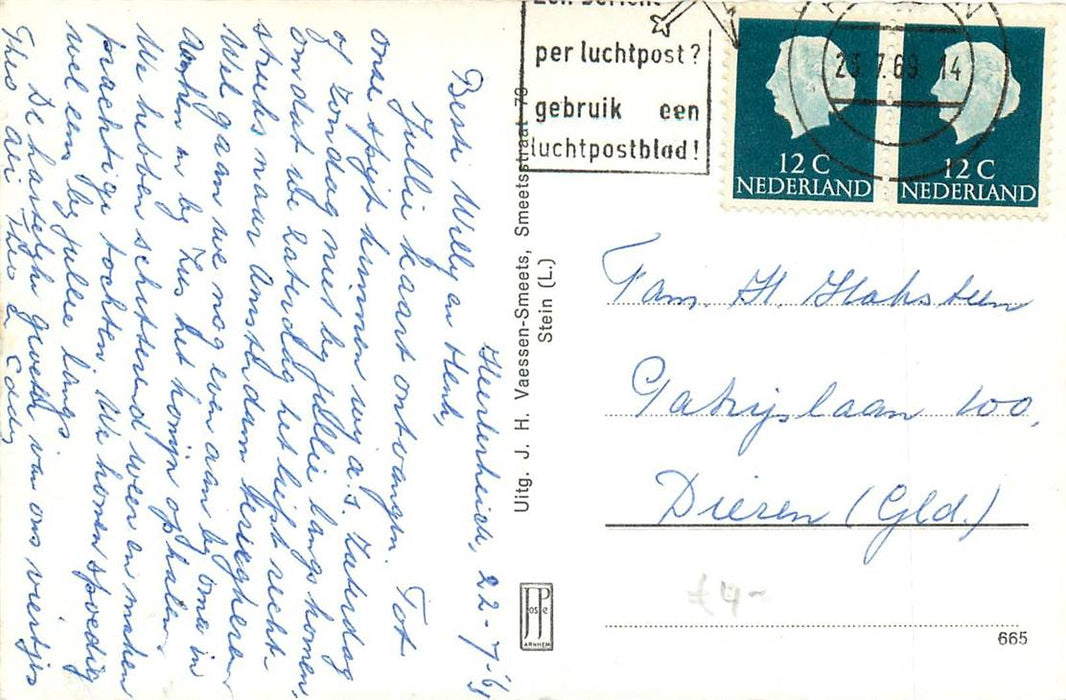 Heerlerheide, 22-7-'69
Beste Willy en Henk,
Jullie kaart ontvangen. Tot
onze spijt kunnen wij a.s. Zaterdag
of Zondag niet by jullie langs komen
omdat we Zaterdag het liefst recht-
streeks naar Amsterdam terug
Wel gaan we nog even aan by oma in
en by Zus het konijn ophalen.
We hebben schitterend weer en maken
prachtige tochten. We komen spoedig
wel een by jullie langs.
De hartelyke groeten van ons viertjes
Theo Theo en
Uitg. J. H. Vaessen-Smeets, Smeetsstraat 70
Stein (L.)
JP
OS E
ARNHEM
Een bericht
per luchtpost?
gebruik een
luchtpostblad!
23.7.69 14
12 C
NEDERLAND
12 C
NEDERLAND
Fam. H. Haksteen
Patrijslaan 100,
Dieren (Gld.)
£4-
665